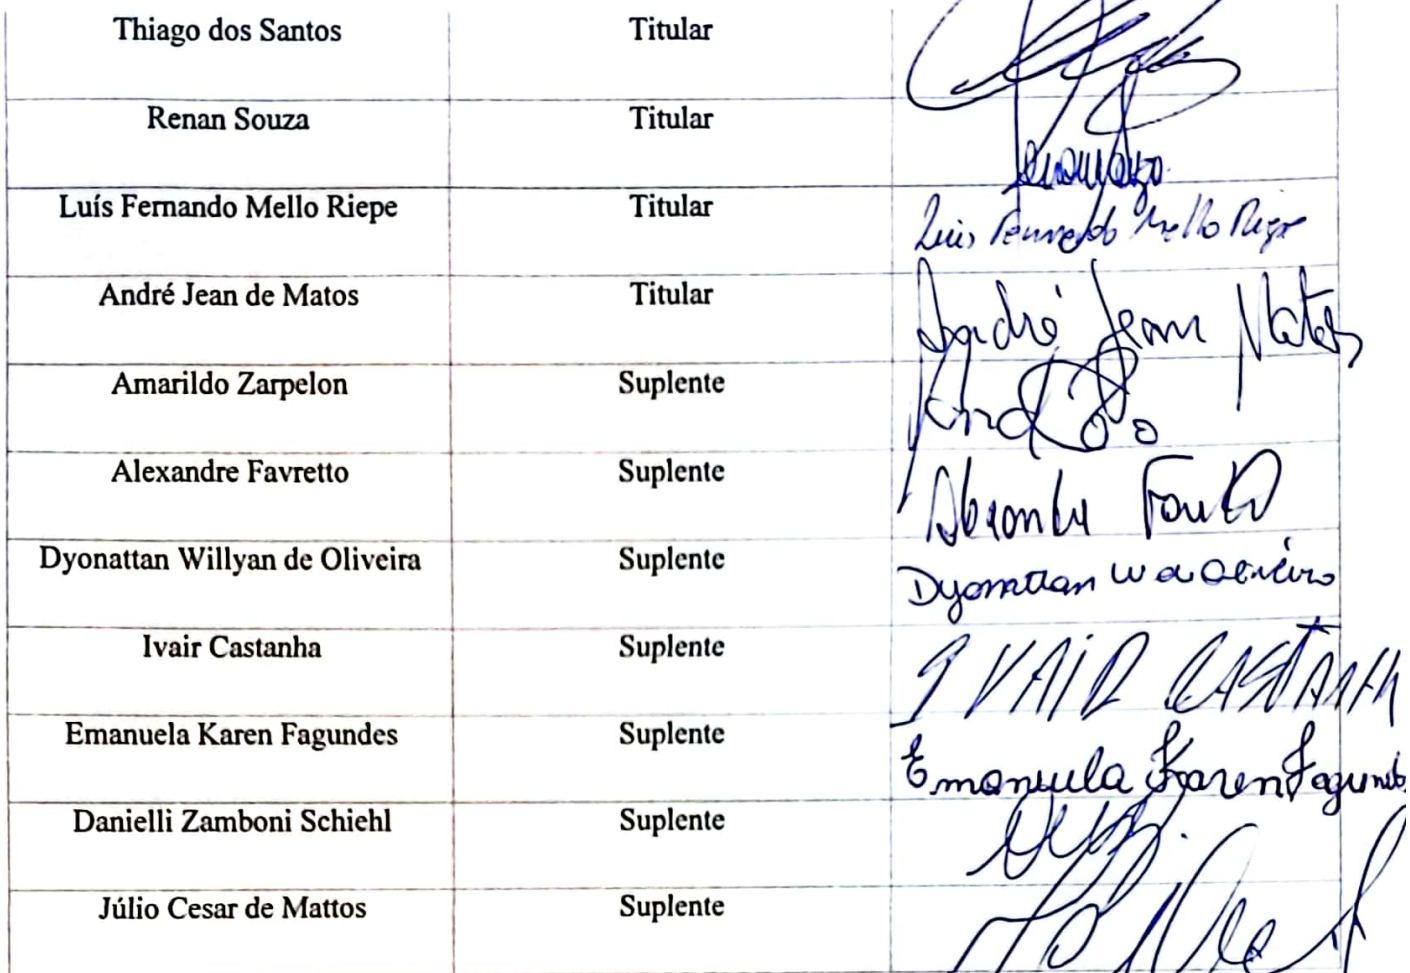 Thiago dos Santos Titular
Renan Souza Titular
Luís Fernando Mello Riepe Titular Luis Fernando Mello Riepe
André Jean de Matos Titular André Jean Matos
Amarildo Zarpelon Suplente
Alexandre Favretto Suplente
Dyonattan Willyan de Oliveira Suplente Dyonattan W de Oliveira
Ivair Castanha Suplente IVAIR CASTANHA
Emanuela Karen Fagundes Suplente Emanuela Karen Fagundes
Danielli Zamboni Schiehl Suplente
Júlio Cesar de Mattos Suplente